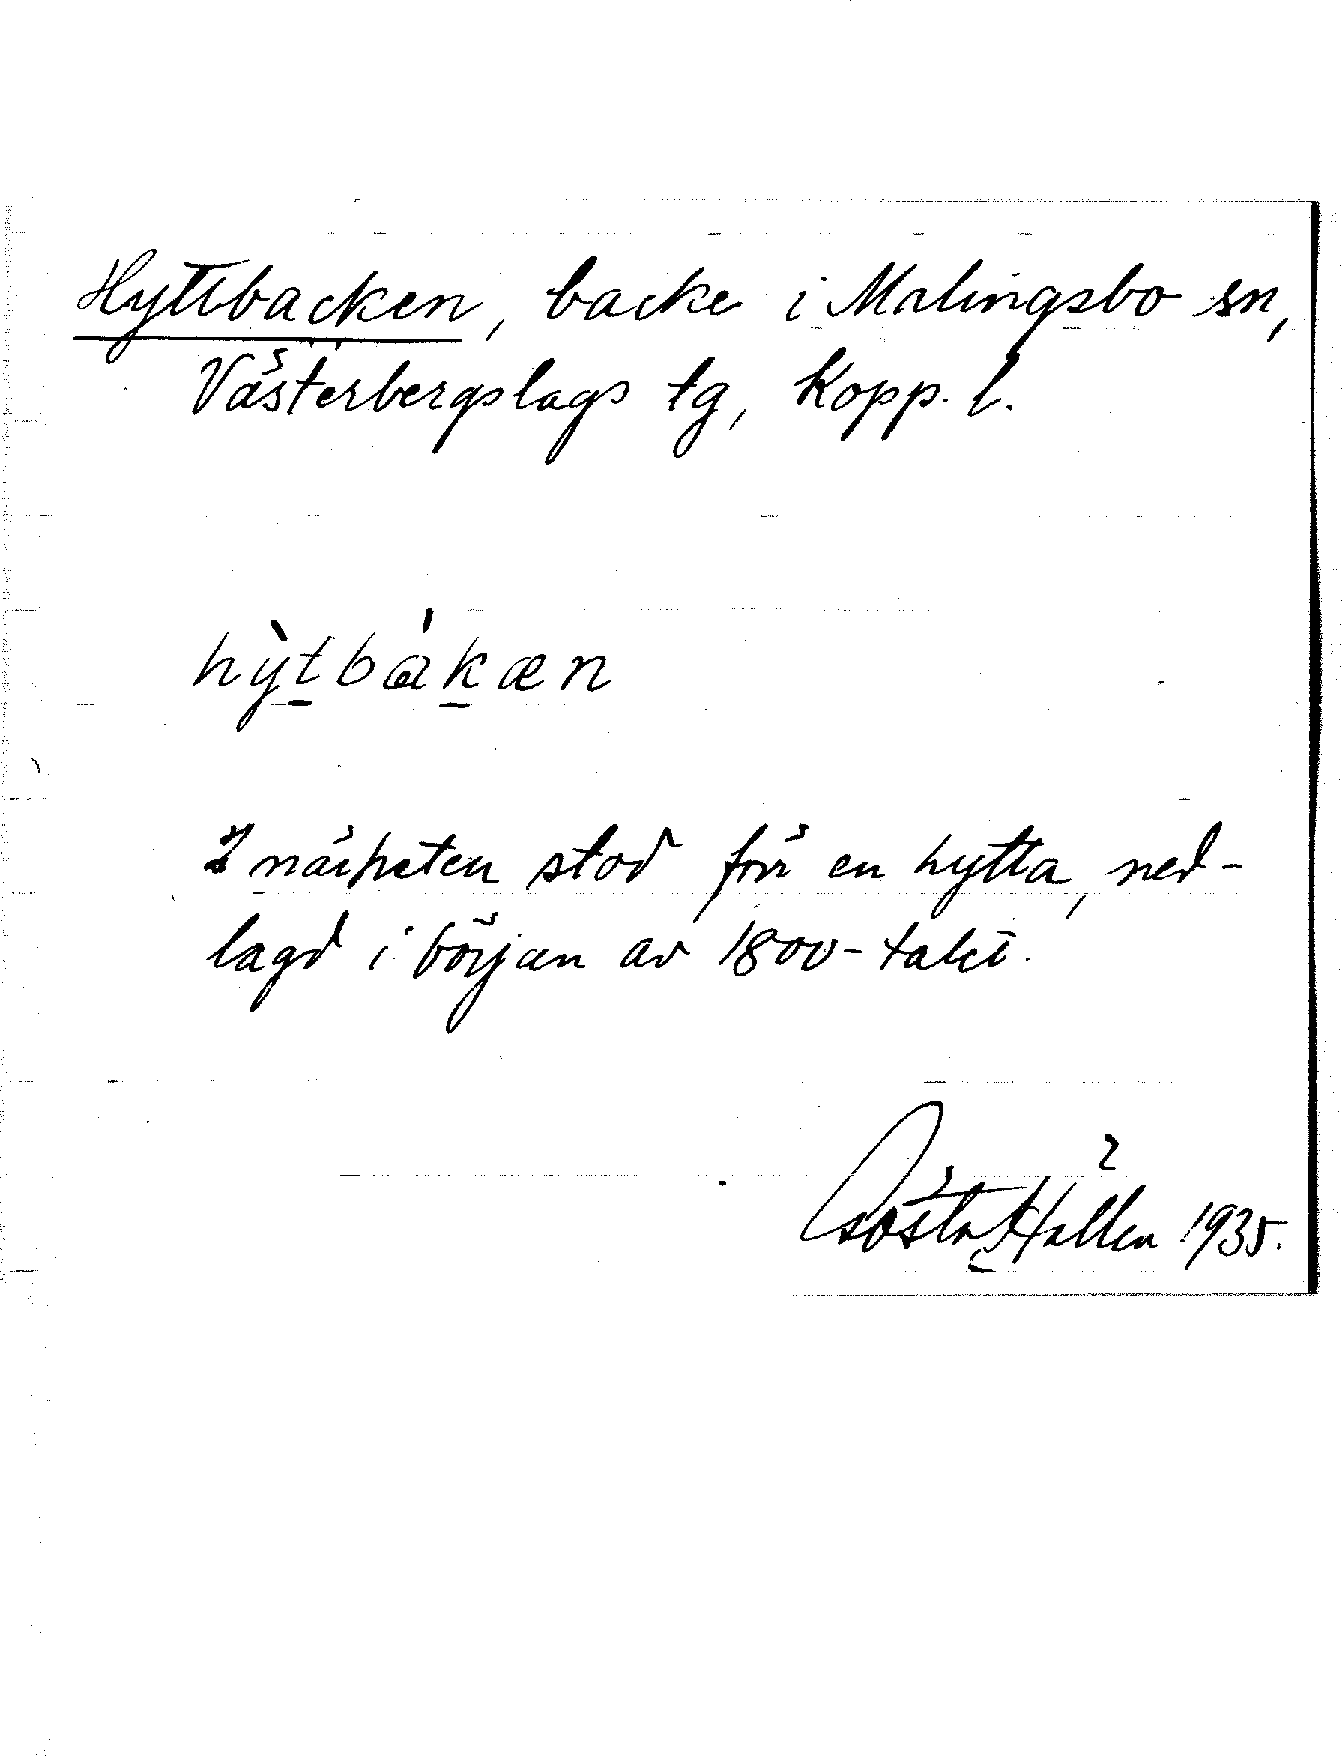 Hyttbacken, backe i Malingsbo sn,
Västerbergslags tg, Kopp. l.
hỳt̠bák̠æn
I närheten stod förr en hytta, ned-
lagd i början av 1800-talet.
Gösta Hallén 1935.